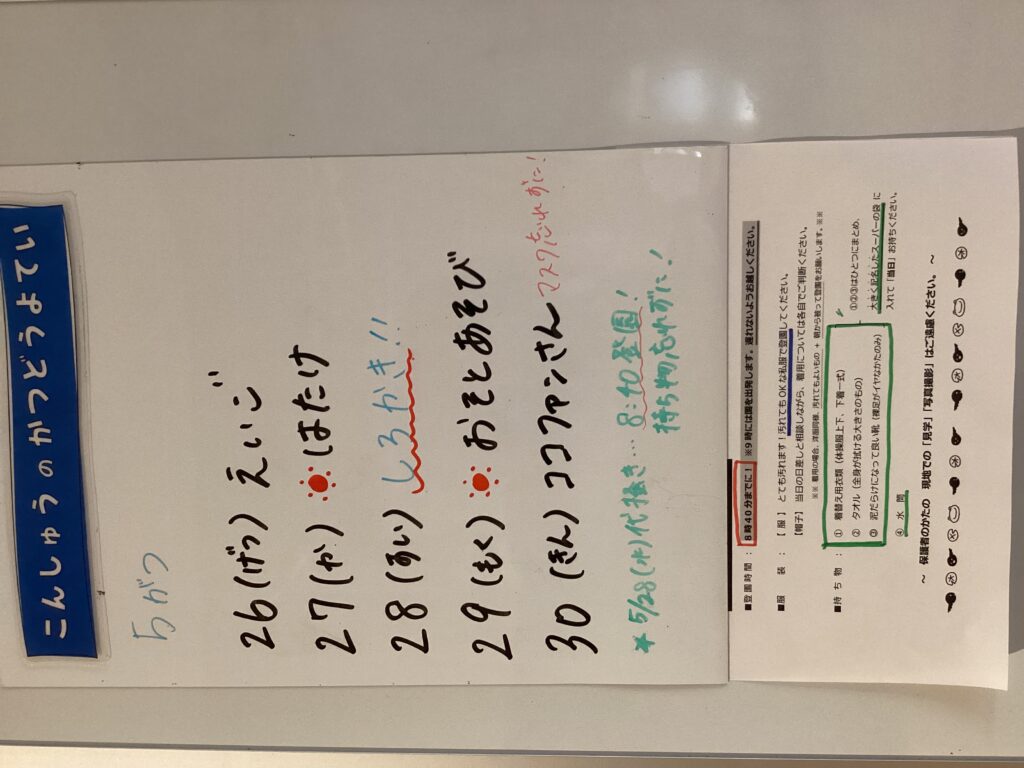 こんしゅうのかつどうよてい
5がつ
26(げつ) えいご
27(か) はたけ
28(すい) しろかき!!
29(もく) おそとあそび
30(きん) ココファンさん マスク忘れずに!
* 5/28(水)代掻き…8:40登園!
持ち物忘れずに!
■登園時間: 8時40分までに! ※9時には園を出発します。遅れないようお越しください。
■服装:【服】とても汚れます!汚れてもOKな私服で登園してください。
【帽子】当日の日差しと相談しながら、着用については各自でご判断ください。
※※ 着用の場合、洋服同様、汚れてもよいもの + 朝から被って登園をお願いします。※※
■持ち物: ① 着替え用衣類(体操服上下、下着一式)
② タオル(全身が拭ける大きさのもの)
③ 泥だらけになって良い靴(裸足がイヤなかたのみ)
①②③はひとつにまとめ、
大きく記名したスーパーの袋に
入れて「当日」お持ちください。
④ 水筒
～ 保護者のかたの 現地での「見学」「写真撮影」はご遠慮ください。～